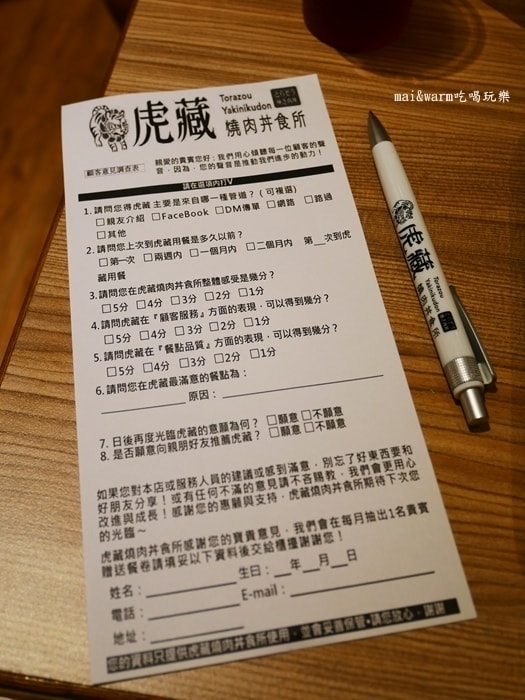 mai&warm吃喝玩樂
虎藏
Torazou
Yakinikudon
燒肉丼食所
顧客意見調查表
親愛的貴賓您好；我們用心傾聽每一位顧客的聲
音，因為，您的聲音是推動我們進步的動力！
請在選項內打V
1. 請問您得虎藏主要是來自哪一種管道？(可複選)
□親友介紹 □FaceBook □DM傳單 □網路 □路過
□其他
2. 請問您上次到虎藏用餐是多久以前？
□第一次 □兩週內 □一個月內 □二個月內 第__次到虎
藏用餐
3. 請問您在虎藏燒肉丼食所整體感受是幾分？
□5分 □4分 □3分 □2分 □1分
4. 請問虎藏在『顧客服務』方面的表現，可以得到幾分？
□5分 □4分 □3分 □2分 □1分
5. 請問虎藏在『餐點品質』方面的表現，可以得到幾分？
□5分 □4分 □3分 □2分 □1分
6. 請問您在虎藏最滿意的餐點為：
____________ 原因：____________________
7. 日後再度光臨虎藏的意願為何？ □願意 □不願意
8. 是否願意向親朋好友推薦虎藏？ □願意 □不願意
如果您對本店或服務人員的建議或感到滿意，別忘了好東西要和
好朋友分享！或有任何不滿的意見請不吝賜教，我們會更用心
改進與成長！感謝您的惠顧與支持，虎藏燒肉丼食所期待下次您
的光臨～
虎藏燒肉丼食所感謝您的寶貴意見，我們會在每月抽出1名貴賓
贈送餐卷請填妥以下資料後交給櫃檯謝謝您！
姓名：____________ 生日：__年__月__日
電話：____________ E-mail：____________
地址：____________________
您的資料只提供虎藏燒肉丼食所使用，並會妥善保管，請您放心，謝謝
虎藏
Torazou
Yakinikudon
燒肉丼食所